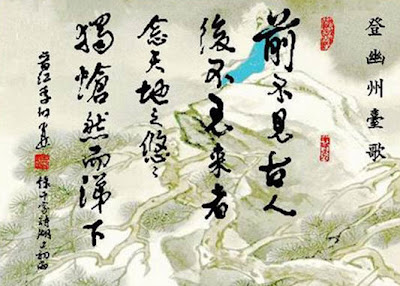 登幽州臺歌
前不見古人
後不見來者
念天地之悠々
獨愴然而涕下